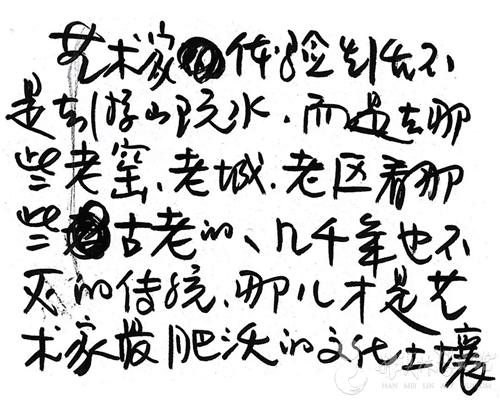 艺术家体验生活不
是去游山玩水,而是去那
些老窑、老城、老区看那
些古老的、几千年也不
灭的传统,那儿才是艺
术家最肥沃的文化土壤
HAN MEI LIN